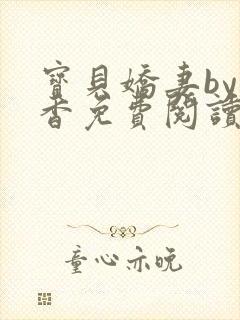 寶貝嬌妻by
香免費閱讀
童心亦晚